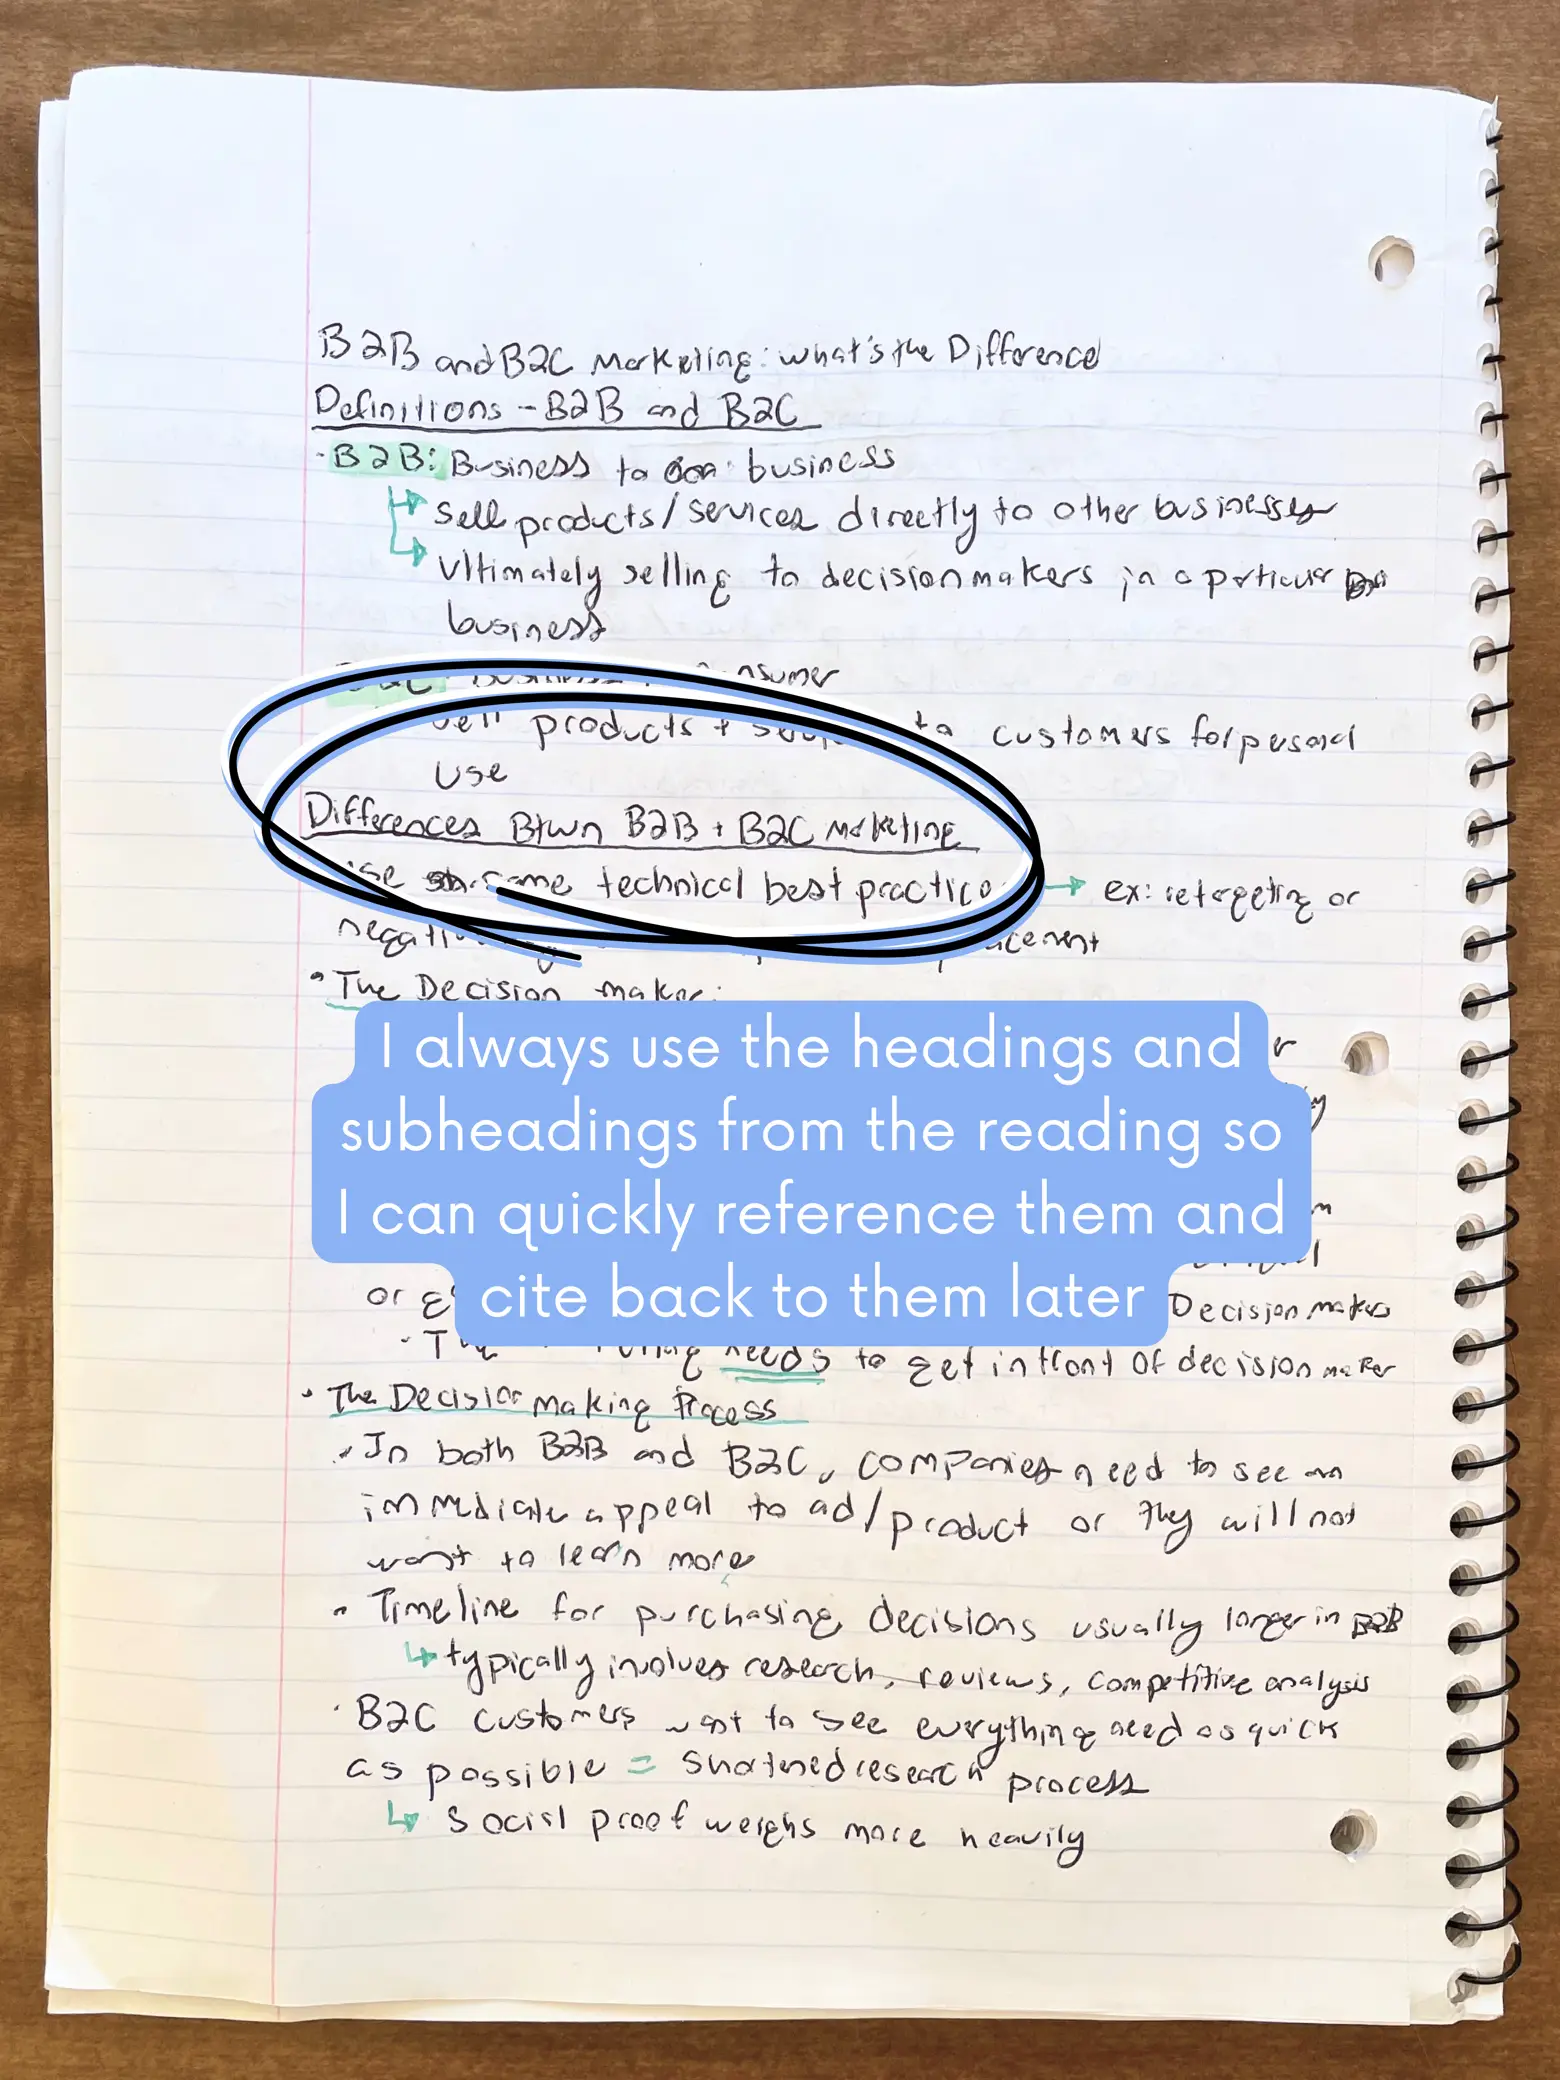 B2B and B2C Marketing: what's the Difference
Definitions - B2B and B2C
· B2B: Business to business
sell products/services directly to other businesses
Ultimately selling to decision makers in a particular
business
B2C: Business consumer
sell products + to customers for personal
use
Differences Btwn B2B + B2C marketing
same technical best practice → ex: retargeting or
• The Decision maker:
I always use the headings and
subheadings from the reading so
I can quickly reference them and
cite back to them later
or Decision makers
needs to get in front of decision maker
• The Decision making Process
• In both B2B and B2C, companies need to see an
immediate appeal to ad/product or they will not
want to learn more
• Timeline for purchasing decisions usually longer in B2B
↳ typically involves research, reviews, competitive analysis
· B2C customers want to see everything need as quick
as possible = shortened research process
↳ social proof weighs more heavily